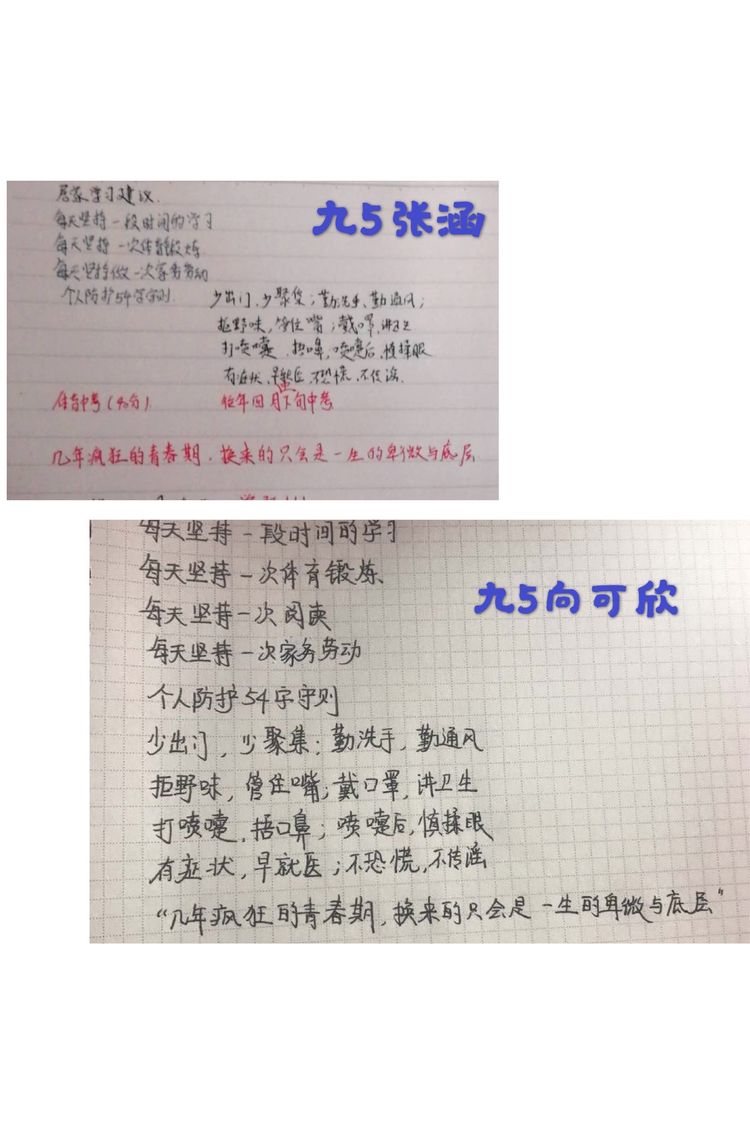 居家学习建议.
九5张涵
每天坚持一段时间的学习
每天坚持一次体育锻炼
每天坚持做一次家务劳动
个人防护54字守则 少出门,少聚集;勤洗手、勤通风;
拒野味,管住嘴;戴口罩,讲卫生
打喷嚏,捂口鼻,喷嚏后,慎揉眼
有症状,早就医,不恐慌,不传谣.
体育中考(40分). 往年四月下旬中考
几年疯狂的青春期,换来的只会是一生的卑微与底层
每天坚持一段时间的学习
每天坚持一次体育锻炼、
九5向可欣
每天坚持一次阅读
每天坚持一次家务劳动
个人防护54字守则
少出门,少聚集;勤洗手,勤通风
拒野味,管住嘴;戴口罩,讲卫生
打喷嚏,捂口鼻;喷嚏后,慎揉眼
有症状,早就医;不恐慌,不传谣
“几年疯狂的青春期,换来的只会是一生的卑微与底层”